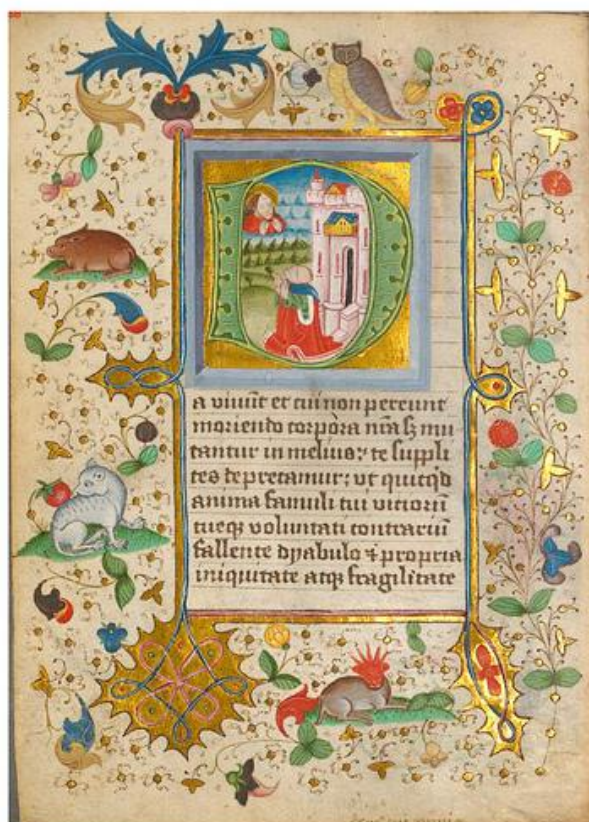 D
a viuūt et cui non pereunt
moriendo corpora nr̄a sʒ mu
tantur in melius: te suppli
ces deprecamur; ut quicq̄d
anima famuli tui viciorū
tueqʒ voluntati contrariū
fallente dyabulo ⁊ propria
iniquitate atqʒ fragilitate